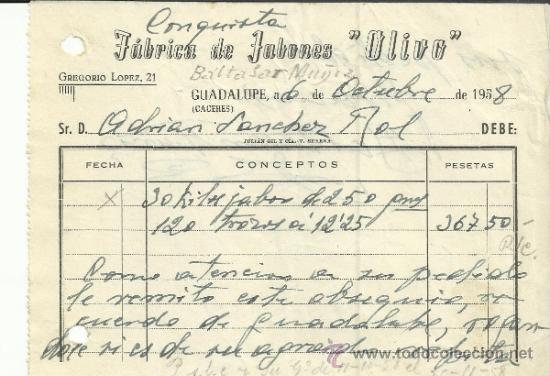 Conquista
Fábrica de Jabones "Olivo"
GREGORIO LOPEZ, 21
Baltasar Muñoz
GUADALUPE, a 6 de Octubre de 1958
(CACERES)
Sr. D. Adrian Sanchez Rol DEBE:
JULIÁN GIL Y CÍA.-T.
FECHA CONCEPTOS PESETAS
X 30 Kilos jabon de 250 gms
120 trozos á 12'25 367'50
Como atencion a su pedido
le remito este obsequio, re
cuerdo de Guadalupe, rogan
dole
todocoleccion.net